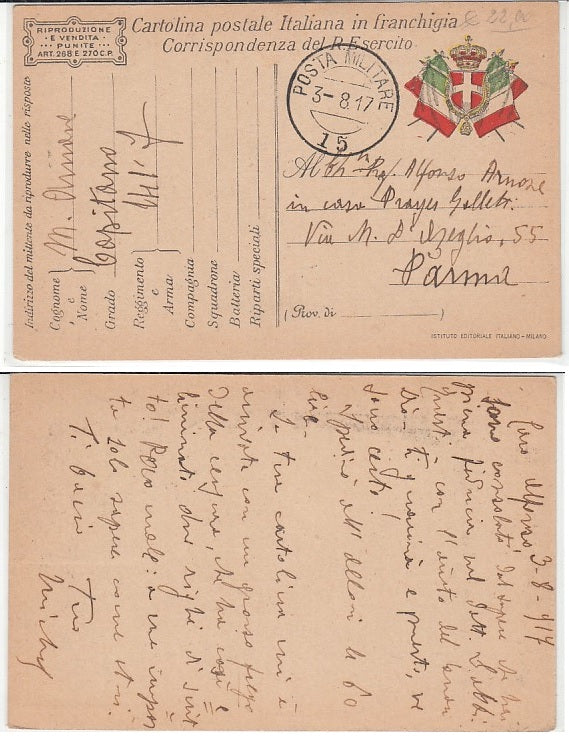 RIPRODUZIONE
E VENDITA
PUNITE
ART. 268 E 270 C.P.
Cartolina postale Italiana in franchigia
Corrispondenza del R. Esercito
22
POSTA MILITARE
3-8.17
15
Indirizzo del mittente da riprodurre nelle risposte
Cognome e Nome M.
Grado Capitano
Reggimento e Arma 141
Compagnia
Squadrone
Batteria
Riparti speciali
Alfonso Arnone
in casa
Via M. D'Azeglio, 55
Parma
(Prov. di )
ISTITUTO EDITORIALE ITALIANO - MILANO
3-8-917
Caro Alfonso
sono consolato dal sapere che hai
piena fiducia nel dott.
Questi con l'aiuto del
Dio ti guarirà e presto, ne
sono certo!
Spedii
La tua cartolina mi è
arrivata con un grosso
della censura, che ha
due righe di
to! Poco male: a me
ta solo sapere come stai.
Ti bacio
Tuo
Michele